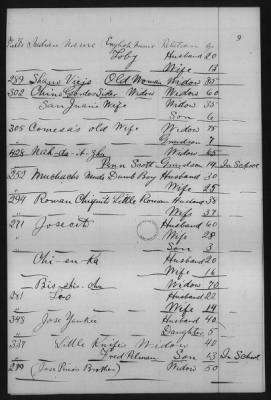 9
Indian Name English Name Relation
Toby Husband 20
Wife 18
289 Shave Viejo Old Woman Widow 85
302 Widow Widow 60
San Juan's Wife Widow 35
Son 6
305 Comesa's old Wife Widow 75
Grandson 9
428 Widow 65
Penn Scott Grandson 14 In School
252 Muchacho Mudo Dumb Boy Husband 30
Wife 25
294 Roman Chiquito Little Roman Husband 38
" Wife 37
271 Josecito Husband 60
" Wife 28
" Son 3
Chi-en-ka Husband 20
Wife 16
Widow 70
281 Husband 22
" Wife 14
348 Jose Yankee Husband 40
" Daughter 5
337 Little Knife Widower 40
" Fred Pelman Son 13 In School
290 (Jose Pino's Brother) Widow 50